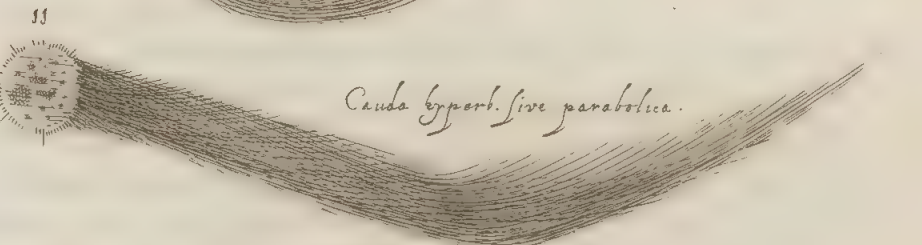 11
Cauda hyperb. sive parabolica.